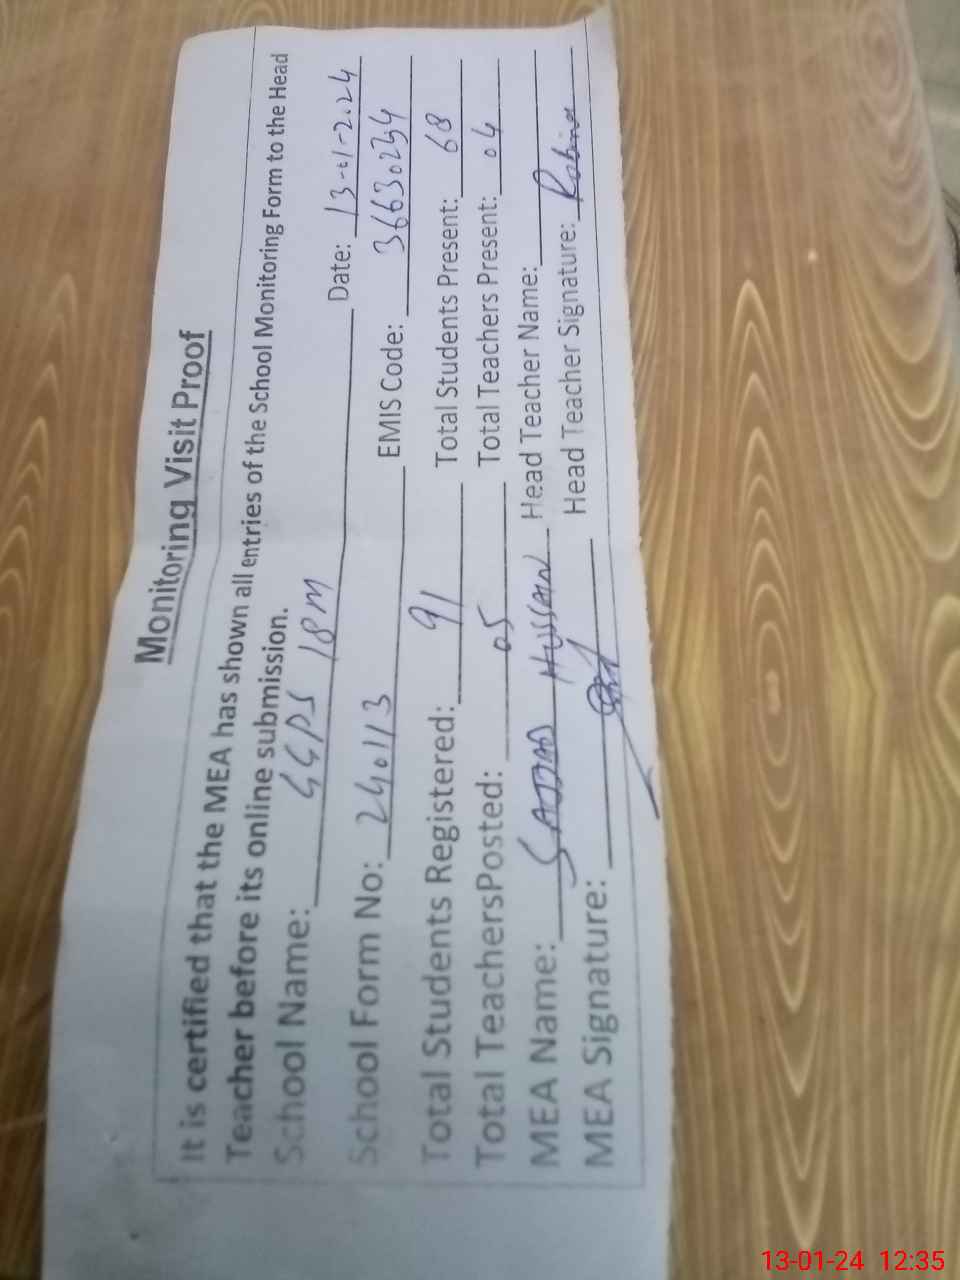 Monitoring Visit Proof
It is certified that the MEA has shown all entries of the School Monitoring Form to the Head
Teacher before its online submission.
School Name: GGPS 18M Date: 13-01-2024
School Form No: 240113 EMIS Code: 36630234
Total Students Registered: 91 Total Students Present: 68
Total TeachersPosted: 05 Total Teachers Present: 04
MEA Name: SAJJAD HUSSAIN Head Teacher Name:
MEA Signature: Head Teacher Signature: Robina
13-01-24 12:35